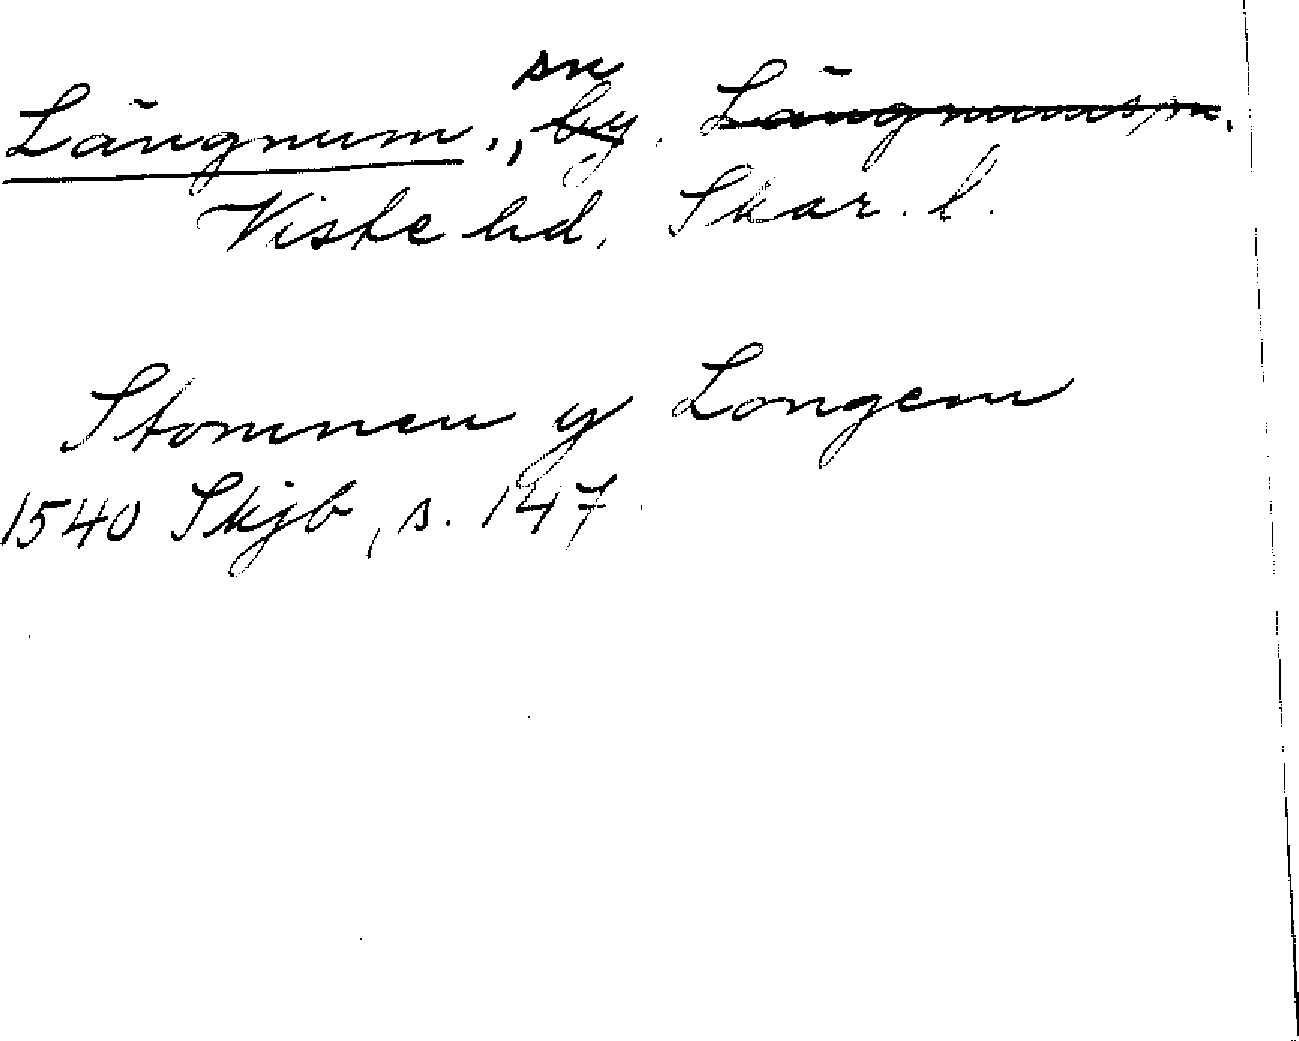 Långnum., sn by. Långnums sn.
Viste hd. Skar. l.
Stommen y Longem
1540 Skjb, s. 147.